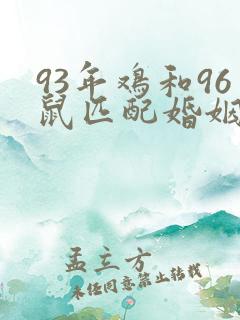 93年鸡和96
鼠匹配婚姻
孟立方
未经同意禁止转载